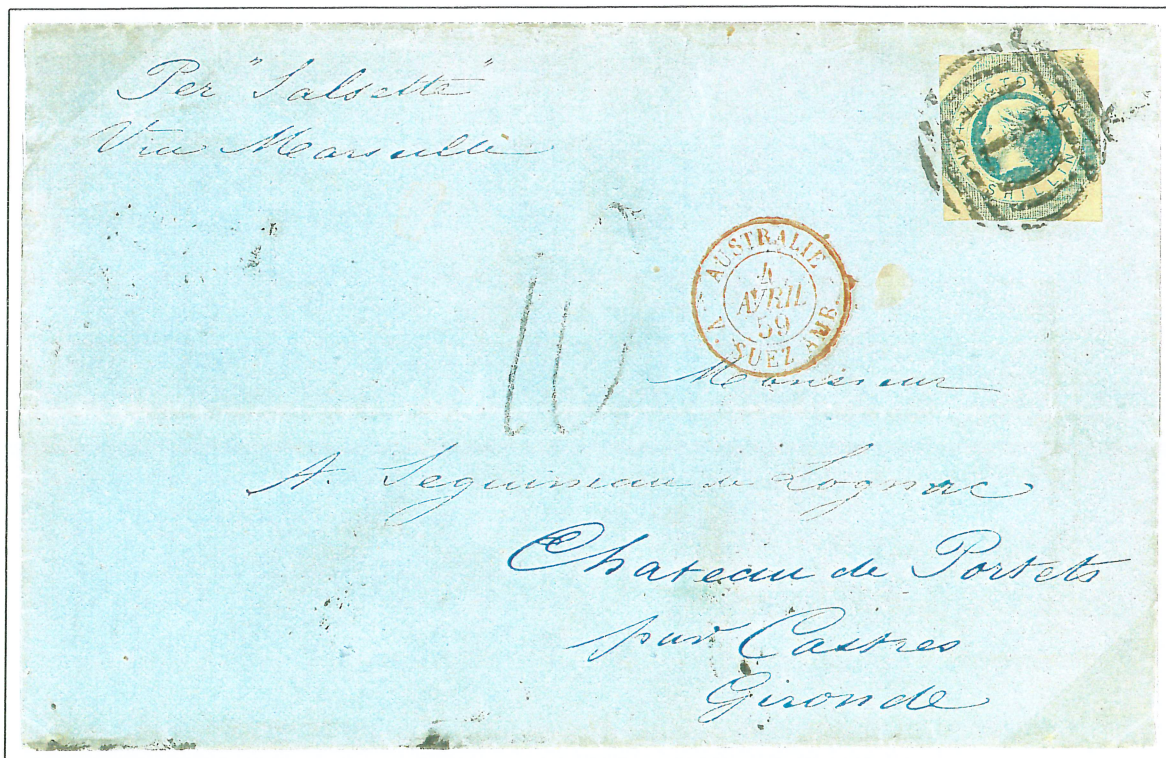 Per "Salsette"
Via Marseille
VICTORIA
SHILLIN
1
10
AUSTRALIE
4
AVRIL
59
A. SUEZ AMB.
Monsieur
A. Seguineau de Lognac
Chateau de Portets
par Castres
Gironde